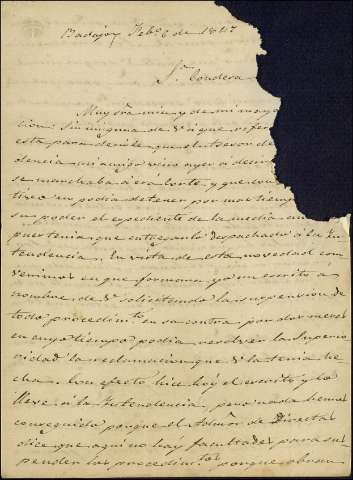 Badajoz Feb.o 6 de 1847
S.ra Condesa
Muy Sra mia y de mi mayor
cion. Sin ninguna de V. a que referir
esta para decirle que el Asesor de
olencia mi amigo vino ayer a decir
se marchaba á esa Corte, y que con
tivo no podia detener por mas tiempo
su poder el expediente de la media an
pues tenia que entregarlo despachado á la Yn
tendencia. En vista de esta novedad con
venimos en que formara yo un escrito a
nombre de V. solicitando la suspension de
todo procedim.to en su contra por dos meses
en cuyo tiempo podia resolver la Superio
ridad la reclamacion que V. la tenia he
cha. Con efecto hice hoy el escrito y lo
lleve á la Yntendencia, pero nada hemos
conseguido porque el Admor de Directas
dice que aqui no hay facultades para sus
pender los procedim.tos porque